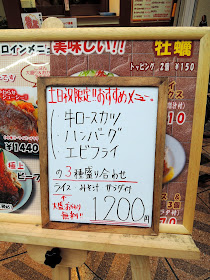 ロインメニュー
美味しい!!
牡蠣
トッピング 2個 ¥150
土日祝限定!!おすすめメニュー
牛ロースカツ
ハンバーグ
エビフライ
の3種盛り合わせ
ライス みそ汁 サラダ付
大盛
無料!!
1200円
¥1440
極上
ビーフ